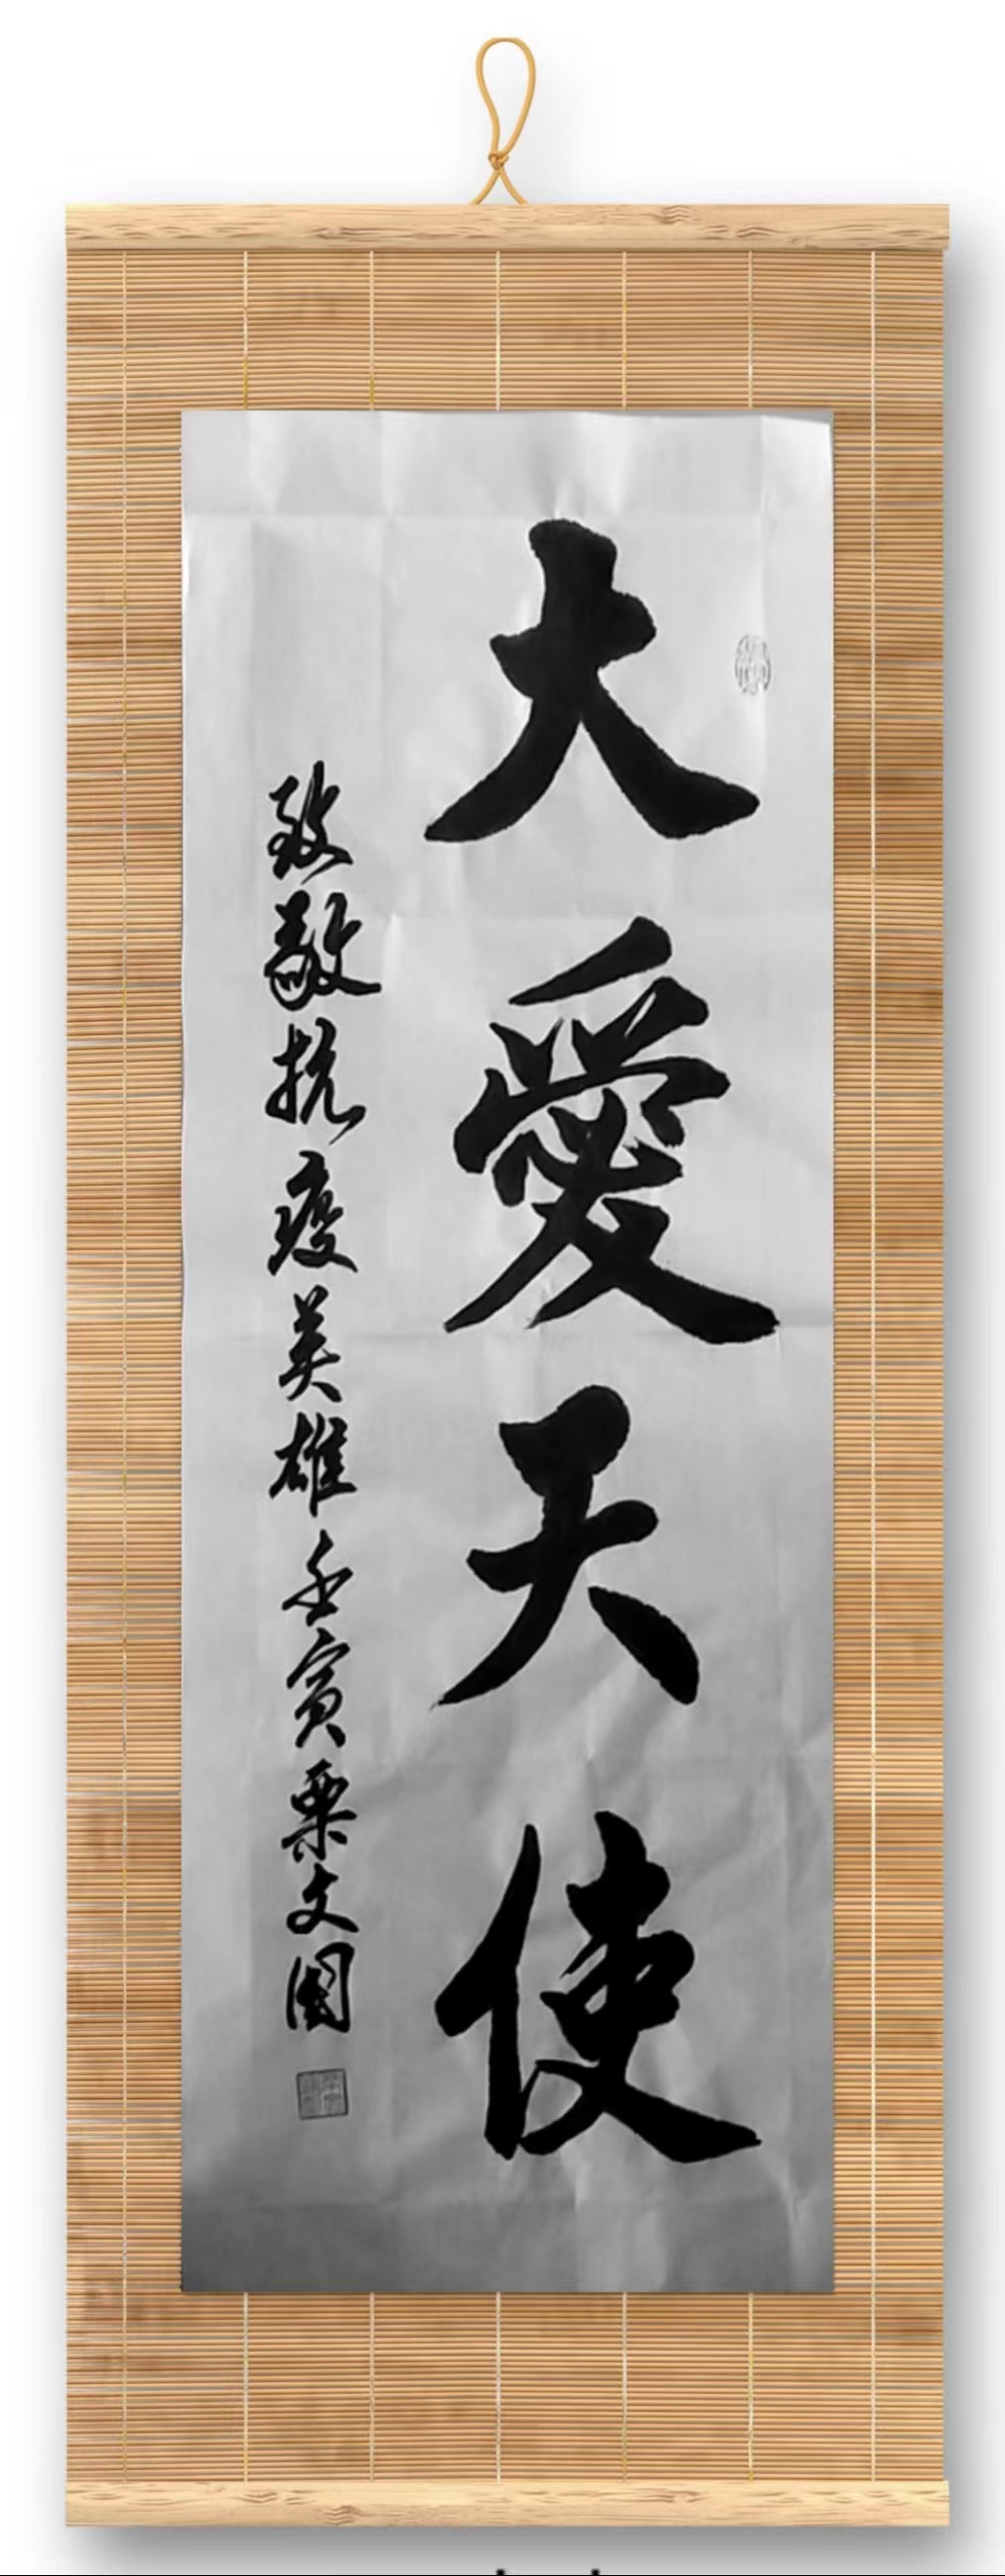 大愛天使
致敬抗疫英雄壬寅栗文國